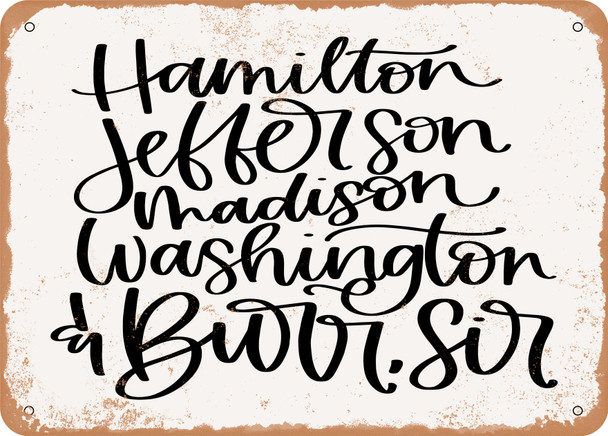 Hamilton
Jefferson
madison
Washington
& Burr. Sir